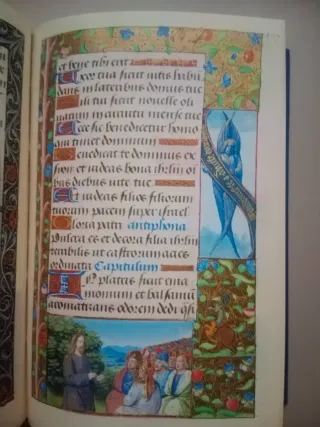 et bene tibi erit
Uxor tua sicut uitis habū
dans in lateribus domus tue
filii tui sicut nouelle oli
uarum in circuitu mense tue
Ecce sic benedicetur homo
qui timet dominum
Benedicat te dominus ex
syon et uideas bona ihrlm oi
bus diebus uite tue
Et uideas filios filiorum
tuorum pacem super israel
Gloria patri antiphona
Pulcra es et decora filia ihrlm
terribilis ut castrorum acies
ordinata Capitulum
In plateis sicut cina
momum et balsamū
aromatizans odorem dedi qsi